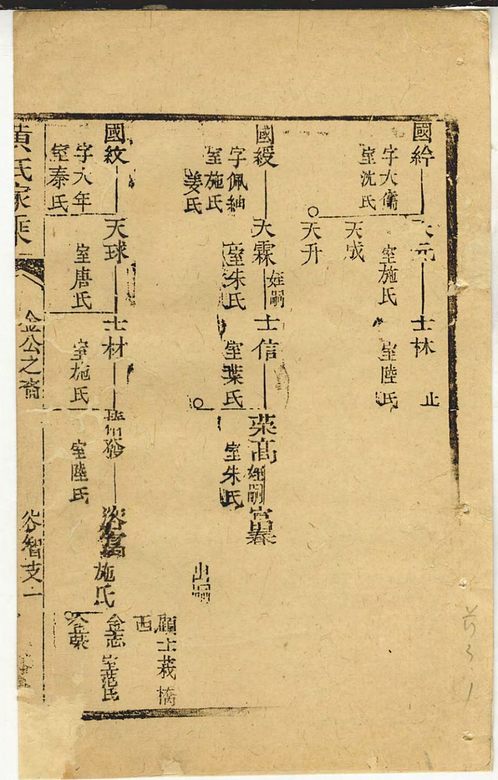 國紟
字大備
室沈氏
天元
室施氏
天成
天升
士林
室陸氏
止
國綬
字佩紬
室施氏
姜氏
天霖
姪嗣
室朱氏
士信
室葉氏
菜高
姪嗣
室朱氏
出嗣
國紋
字大年
室秦氏
天球
室唐氏
士材
室施氏
室陸氏
施氏
顧士莪橋
西
金志
室范氏
黃氏家乘
金公之裔